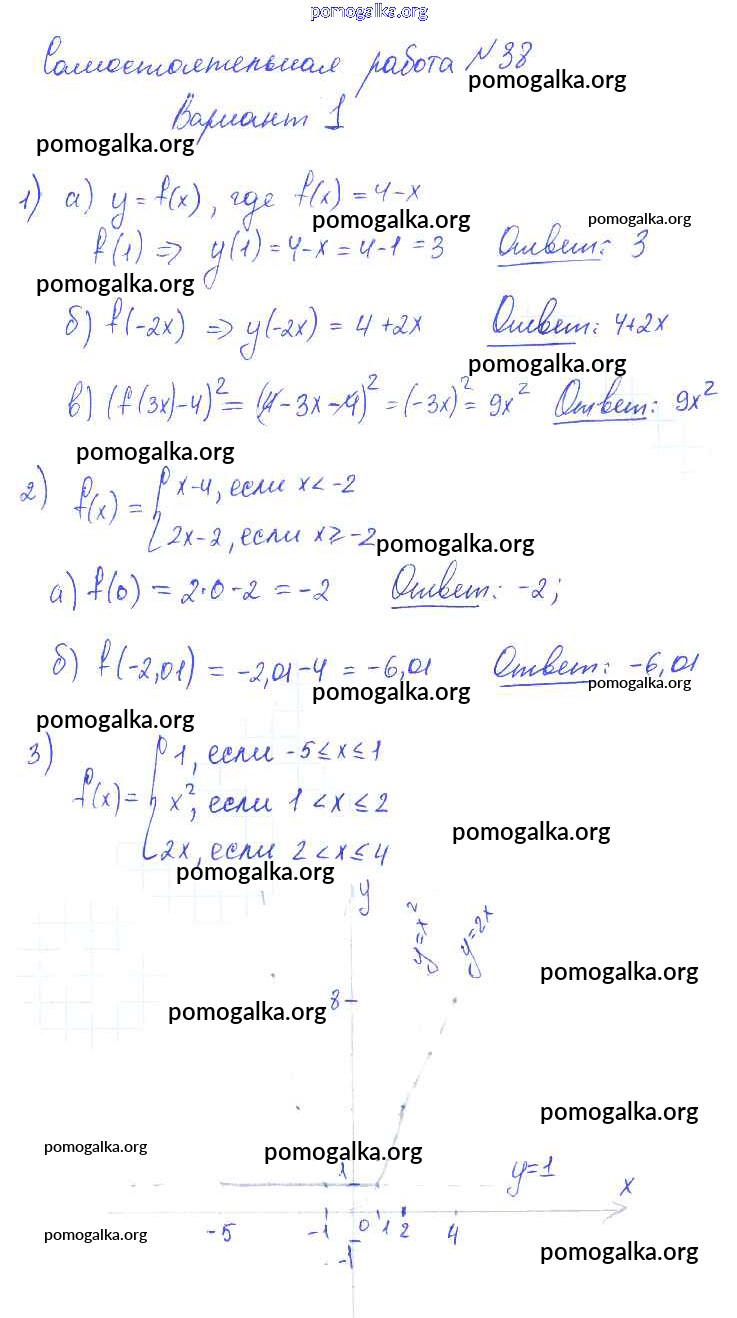 pomogalka.org
Самостоятельная работа №38
pomogalka.org
Вариант 1
pomogalka.org
1) а) y = f(x), где f(x) = 4-x
pomogalka.org pomogalka.org
f(1) => y(1) = 4-x = 4-1 = 3 Ответ: 3
pomogalka.org
б) f(-2x) => y(-2x) = 4+2x Ответ: 4+2x
pomogalka.org
в) (f(3x)-4)² = (4-3x-4)² = (-3x)² = 9x² Ответ: 9x²
pomogalka.org
2) f(x) = { x-4, если x < -2
2x-2, если x ⩾ -2
pomogalka.org
а) f(0) = 2·0-2 = -2 Ответ: -2;
б) f(-2,01) = -2,01-4 = -6,01 Ответ: -6,01
pomogalka.org pomogalka.org
pomogalka.org
3) f(x) = { 1, если -5 ≤ x ≤ 1
x², если 1 < x ≤ 2
2x, если 2 < x ≤ 4
pomogalka.org
pomogalka.org
y
y=x² y=2x
pomogalka.org
8
pomogalka.org
pomogalka.org
pomogalka.org pomogalka.org
1 y=1 x
-5 -1 0 1 2 4
pomogalka.org pomogalka.org
-1